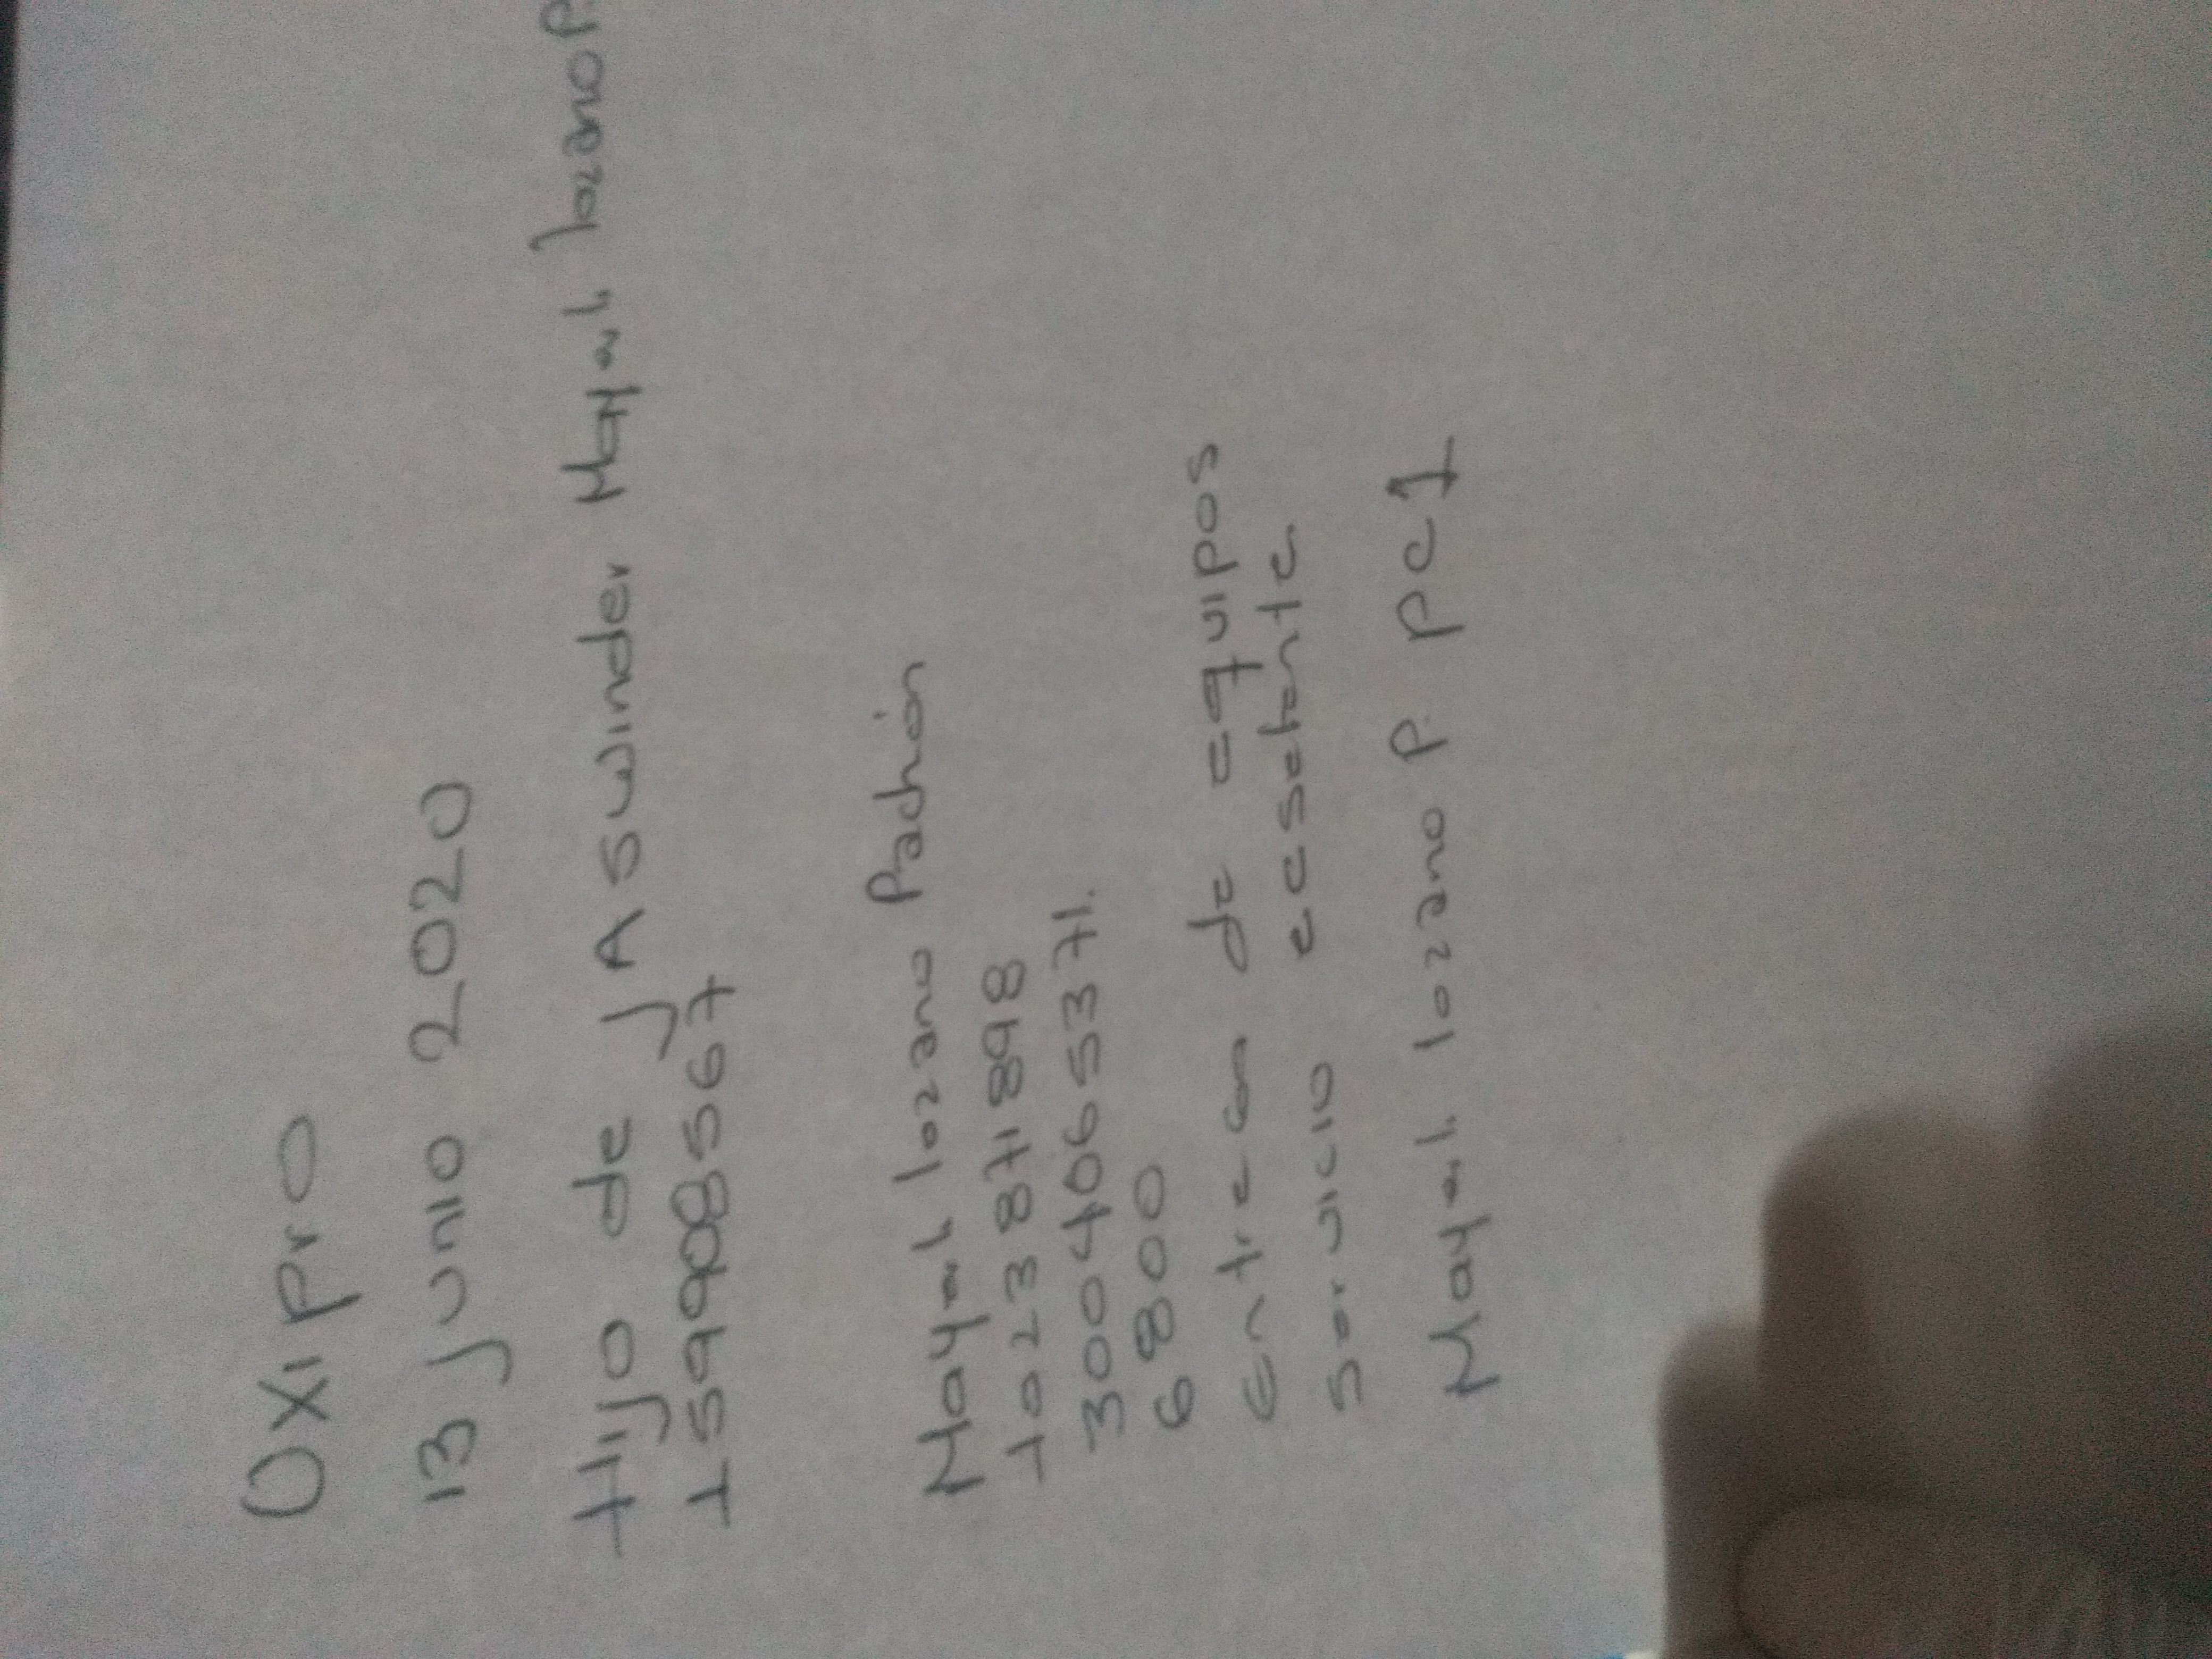 OXI pro
13 Junio 2020
Hijo de JAswinder Mayerl lozano P.
1599085567
Mayerl lozano Pachón
1023871898
3004065371.
6800
Entrega de equipos
servicio
Mayerl lozano P. PC1